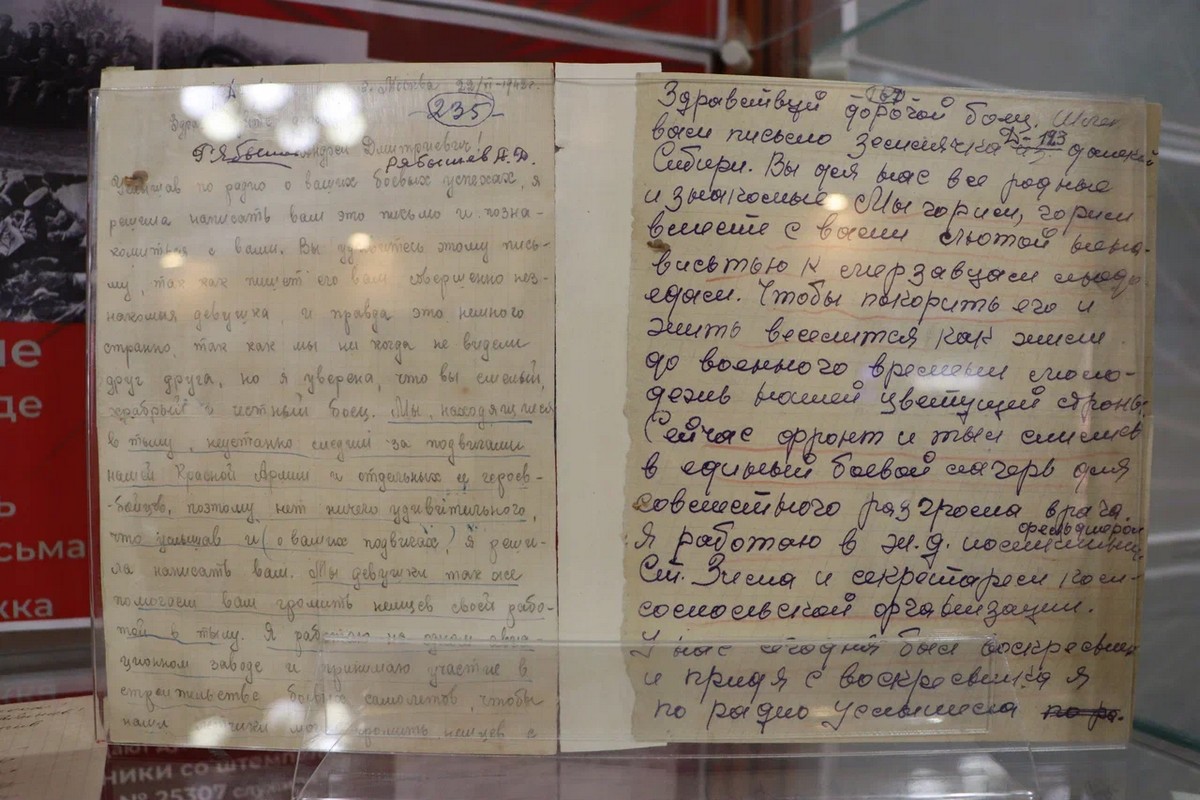 г. Москва 22/VI-1942г.
235
Андрей Дмитриевич!
Рябышев А. Д.
Услышав по радио о ваших боевых успехах, я
решила написать вам это письмо и позна-
комиться с вами. Вы удивитесь этому пись-
му, так как пишет его вам совершенно нез-
накомая девушка, и правда это немного
странно, так как мы ни когда не видели
друг друга, но я уверена, что вы смелый,
храбрый и честный боец. Мы, находящиеся
в тылу, неустанно следим за подвигами
нашей Красной Армии и отдельных ее героев-
-бойцов, поэтому нет ничего удивительного,
что услышав и (о ваших подвигах) я реши-
ла написать вам. Мы девушки так же
помогаем вам громить немцев своей рабо-
той в тылу. Я работаю на одном авиа-
ционном заводе и принимаю участие в
строительстве боевых самолетов, чтобы
наши громить немцев с
167
Здравствуй дорогой боец. Шлет
вам письмо землячка далекой
Д-113
Сибири. Вы для нас все родные
и знакомые Мы горим, горим
вместе с вами лютой нена-
висьтью к мерзавцам людо
едам. Чтобы покорить его и
жить веселится как жили
до военного времени моло-
дежь нашей цветущей страны.
Сейчас фронт и тыл слились
в единый боевой лагерь для
совместного разгрома врага.
фельдшером
Я работаю в ж.д.
Ст. Зима и секретарем ком-
сомольской организации.
У нас сегодня был воскресник
и придя с воскресника я
по радио услышала по ра.
не
де
ь
сьма
жка
НИКИ СО ШТЕМП
№ 25307 СЛУЖИ